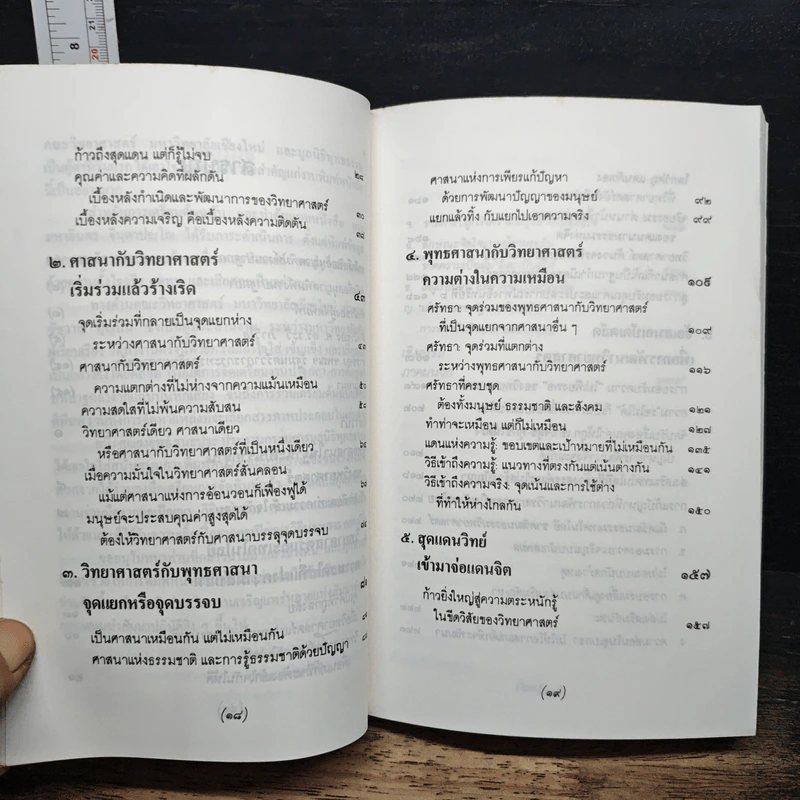 ก้าวถึงสุดแดน แต่ก็รู้ไม่จบ
คุณค่าและความคิดที่ผลักดัน ๒๘
เบื้องหลังกำเนิดและพัฒนาการของวิทยาศาสตร์ ๓๐
เบื้องหลังความเจริญ คือเบื้องหลังความติดตัน ๓๘
๒. ศาสนากับวิทยาศาสตร์
เริ่มร่วมแล้วร้างเริด ๔๓
จุดเริ่มร่วมที่กลายเป็นจุดแยกห่าง
ระหว่างศาสนากับวิทยาศาสตร์
ศาสนากับวิทยาศาสตร์
ความแตกต่างที่ไม่ห่างจากความแม้นเหมือน
ความสดใสที่ไม่พ้นความสับสน
วิทยาศาสตร์เดียว ศาสนาเดียว
หรือศาสนากับวิทยาศาสตร์ที่เป็นหนึ่งเดียว
เมื่อความมั่นใจในวิทยาศาสตร์สั่นคลอน
แม้แต่ศาสนาแห่งการอ้อนวอนก็เฟื่องฟูได้
มนุษย์จะประสบคุณค่าสูงสุดได้
ต้องให้วิทยาศาสตร์กับศาสนาบรรลุจุดบรรจบ
๓. วิทยาศาสตร์กับพุทธศาสนา
จุดแยกหรือจุดบรรจบ
เป็นศาสนาเหมือนกัน แต่ไม่เหมือนกัน
ศาสนาแห่งธรรมชาติ และการรู้ธรรมชาติด้วยปัญญา
(๑๘)
ศาสนาแห่งการเพียรแก้ปัญหา
ด้วยการพัฒนาปัญญาของมนุษย์ ๙๒
แยกแล้วทิ้ง กับแยกไปเอาความจริง ๙๙
๔. พุทธศาสนากับวิทยาศาสตร์
ความต่างในความเหมือน ๑๐๕
ศรัทธา: จุดร่วมของพุทธศาสนากับวิทยาศาสตร์
ที่เป็นจุดแยกจากศาสนาอื่น ๆ ๑๐๙
ศรัทธา: จุดร่วมที่แตกต่าง
ระหว่างพุทธศาสนากับวิทยาศาสตร์ ๑๑๖
ศรัทธาที่ครบชุด
ต้องทั้งมนุษย์ ธรรมชาติ และสังคม ๑๒๑
ทำท่าจะเหมือน แต่ก็ไม่เหมือน ๑๒๘
แดนแห่งความรู้: ขอบเขตและเป้าหมายที่ไม่เหมือนกัน ๑๓๕
วิธีเข้าถึงความรู้: แนวทางที่ตรงกันแต่เน้นต่างกัน ๑๔๑
วิธีเข้าถึงความจริง: จุดเน้นและการใช้ต่าง
ที่ทำให้ห่างไกลกัน ๑๕๐
๕. สุดแดนวิทย์
เข้ามาจ่อแดนจิต ๑๕๗
ก้าวยิ่งใหญ่สู่ความตระหนักรู้
ในขีดวิสัยของวิทยาศาสตร์ ๑๕๗
(๑๙)